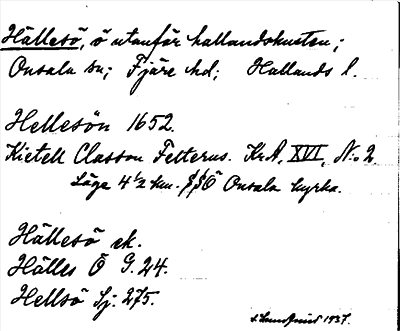 Hällesö, ö utanför hallandskusten;
Onsala sn; Fjäre hd; Hallands l.
Hellesön 1652.
Kietell Classon Felterus. KrA, XVI, N:o 2.
Läge 4 1/2 km. SSÖ Onsala kyrka.
Hällesö ek.
Hälles Ö G. 24.
Hellsö Sj: 275.
1937.